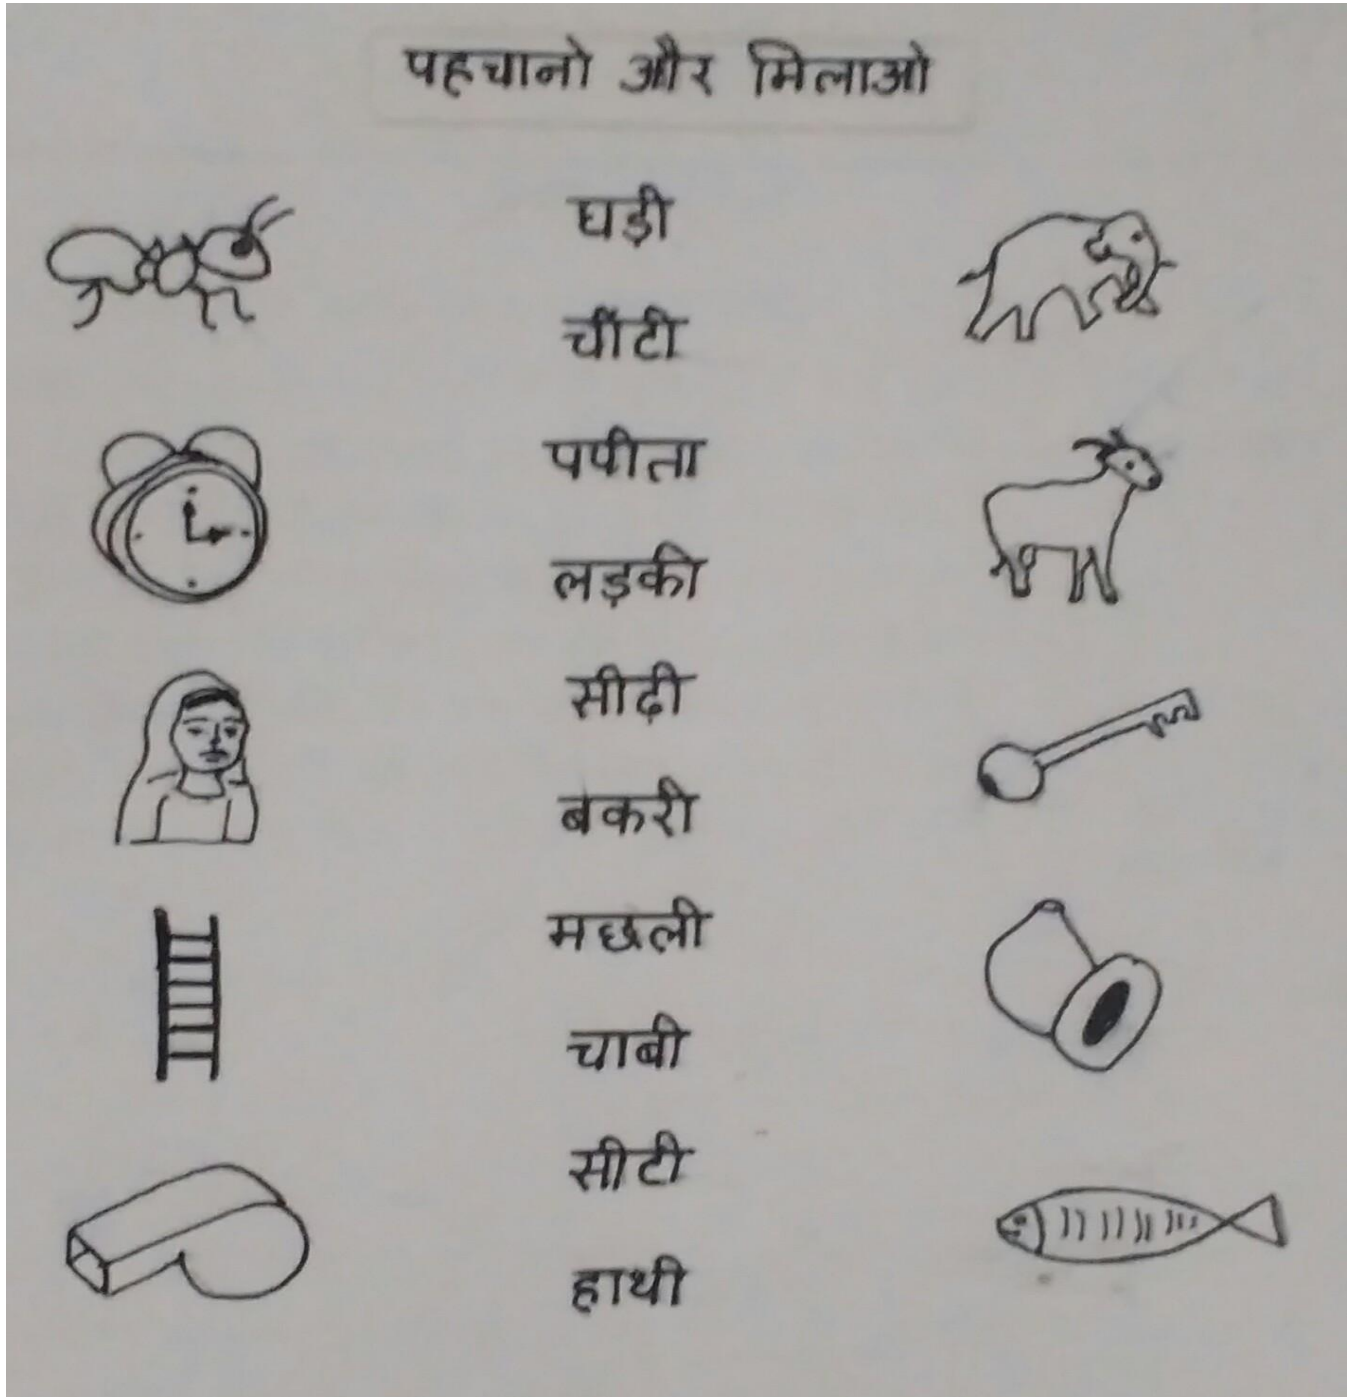 पहचानो और मिलाओ
घड़ी
चींटी
पपीता
लड़की
सीढ़ी
बकरी
मछली
चाबी
सीटी
हाथी